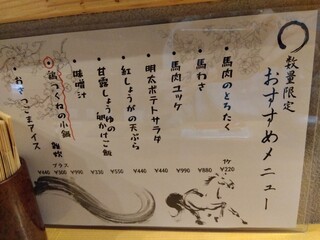 数量限定
おすすめメニュー
・馬肉のとろたく ¥220
・馬わさ ¥880
・馬肉ユッケ ¥990
・明太ポテトサラダ ¥440
・紅しょうがの天ぷら ¥550
・甘露しょうゆの卵かけご飯 ¥330
・味噌汁
・鶏つくねの小鍋 ¥990
雑炊 プラス ¥300
・おさつごまアイス ¥440